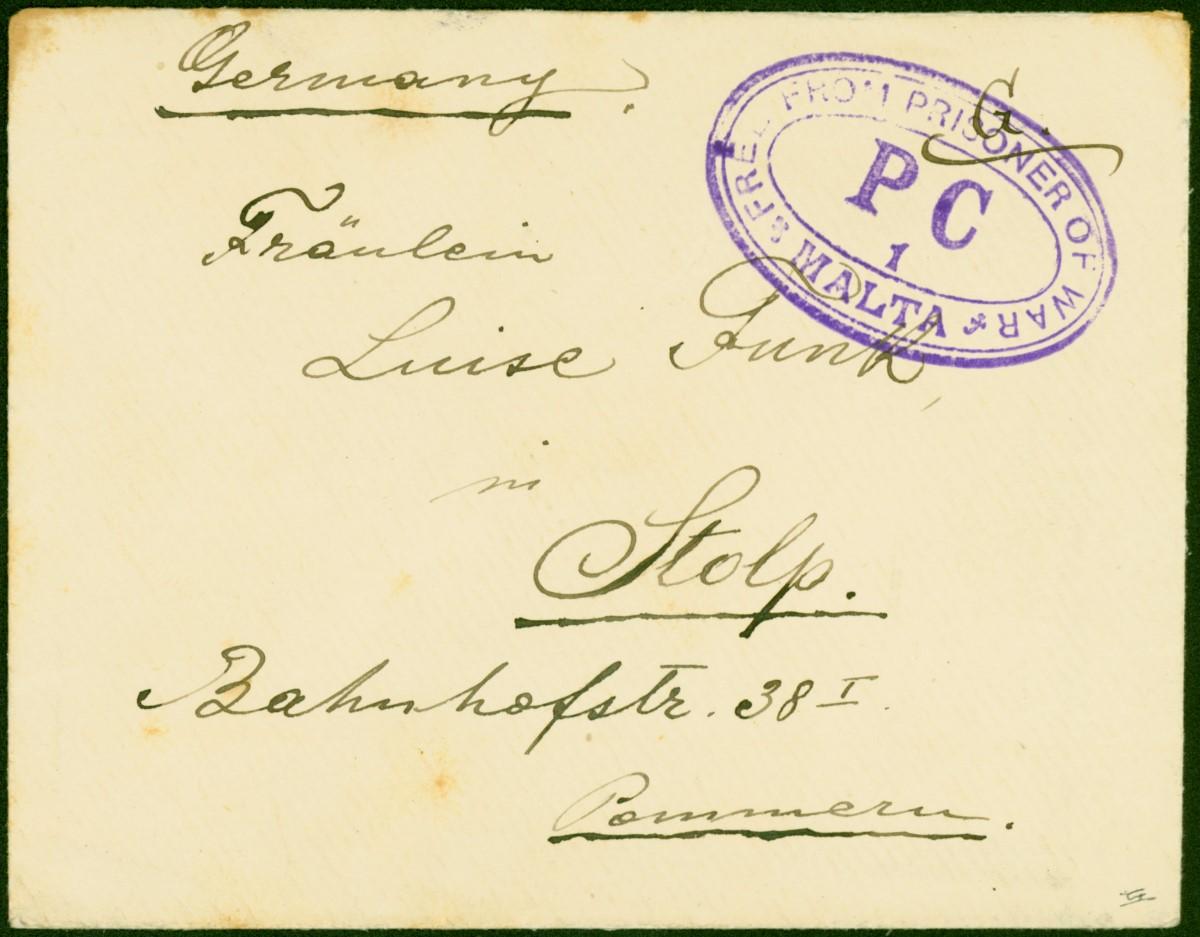 Germany.
G.
FREE FROM PRISONER OF WAR
P C
1
MALTA
Fräulein
Luise Funk,
in
Stolp.
Bahnhofstr. 38 I.
Pommern.